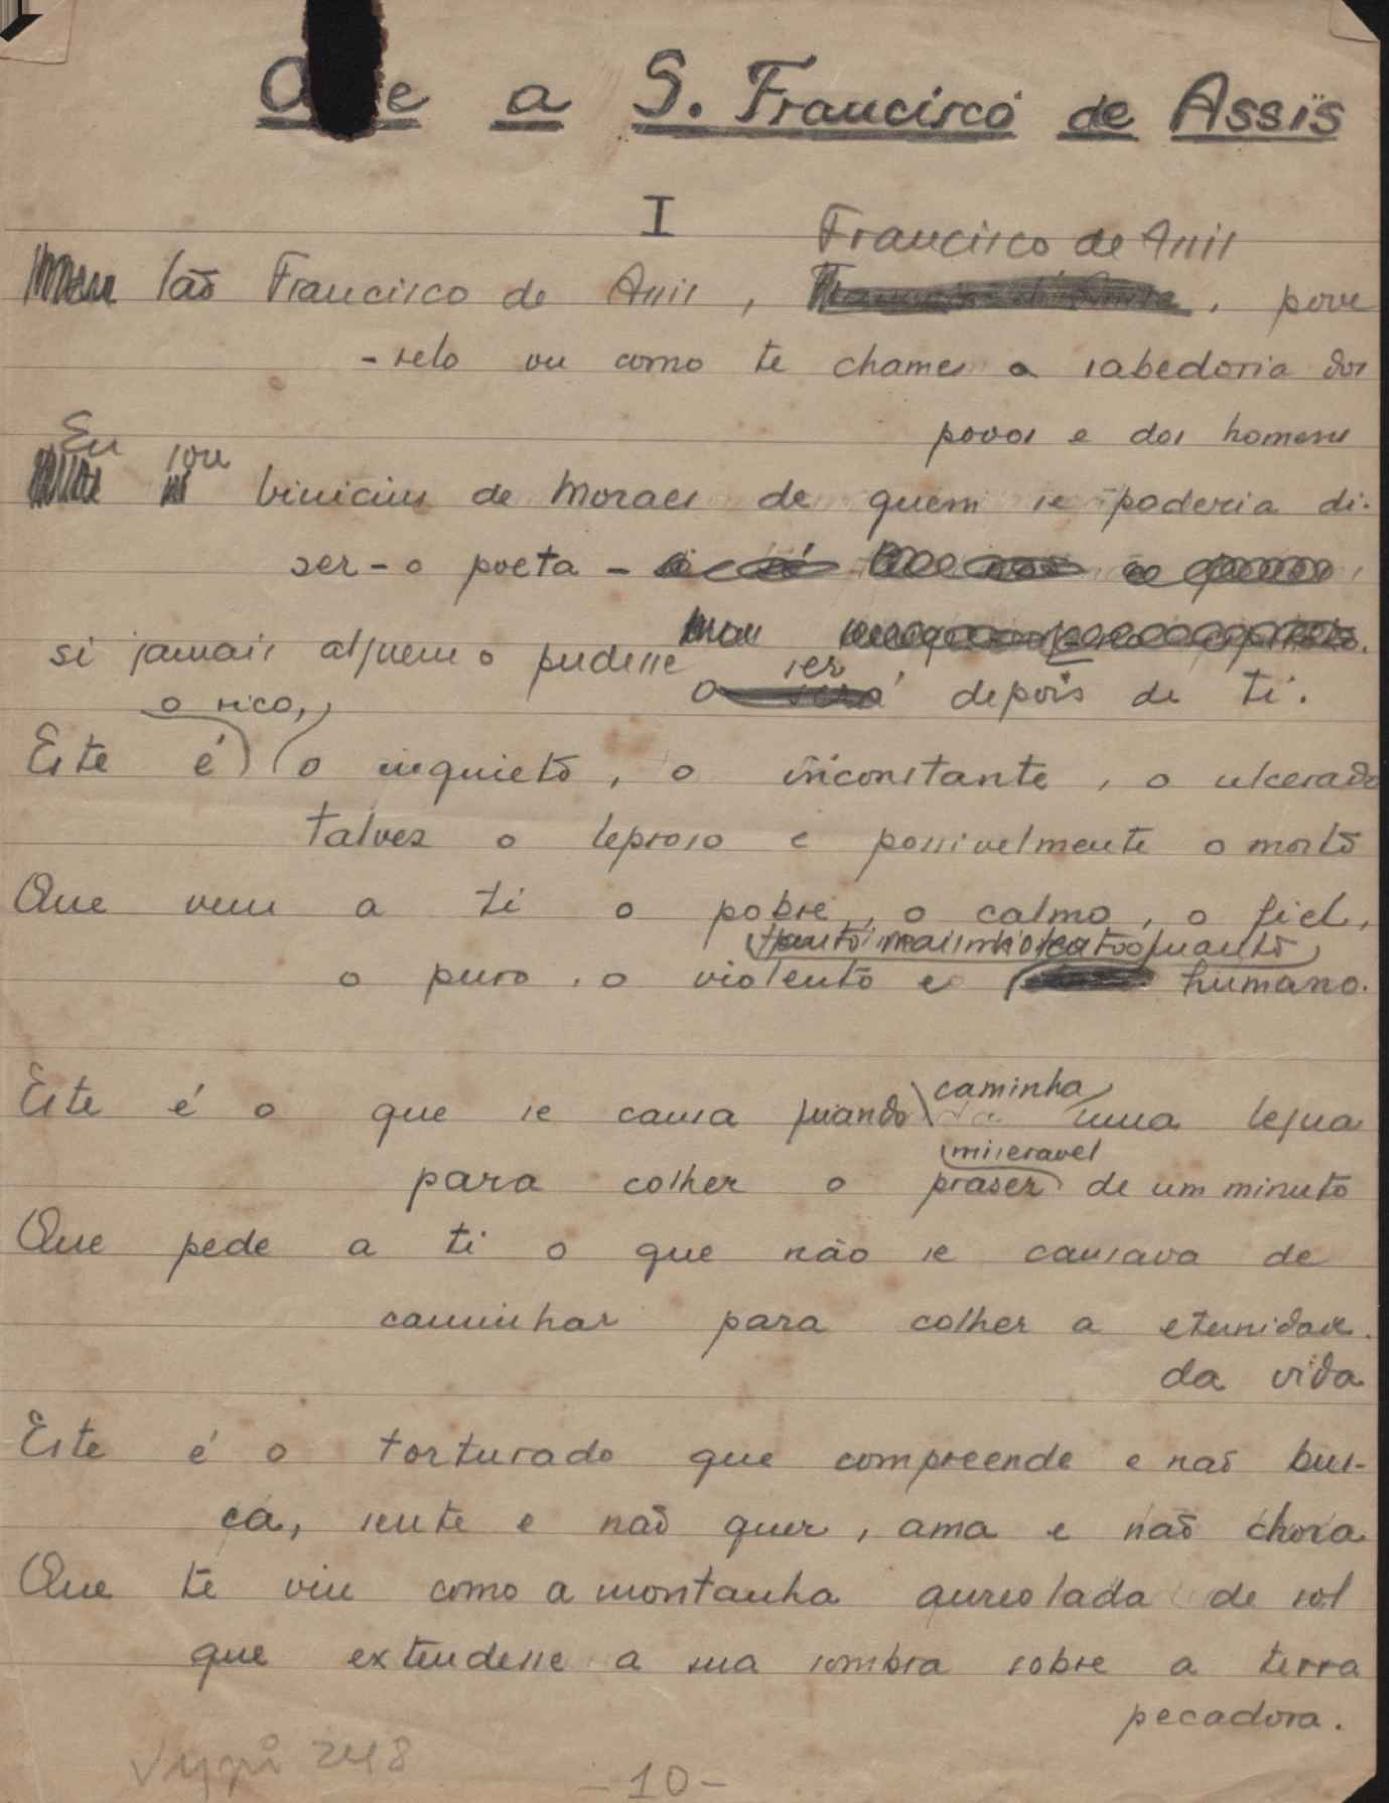 O e a S. Francisco de Assis
I
Francisco de Assis
São Francisco de Assis, , pove
-relo ou como te chames a sabedoria dos
povos e dos homens
Eu sou
Vinicius de Moraes de quem se poderia di-
zer - o poeta -
si jamais alguem o pudesse
ser
o depois de ti.
o rico,
Este é o inquieto, o inconstante, o ulcerado
talvez o leproso e possivelmente o morto
Que vem a ti o pobre, o calmo, o fiel,
tanto mais quanto
o puro, o violento e humano.
Este é o que se cansa quando uma legua
caminha
miseravel
para colher o praser de um minuto
Que pede a ti o que não se cansava de
caminhar para colher a eternidade
da vida
Este é o torturado que compreende e não bus-
ca, sente e não quer, ama e não chora
Que te viu como a montanha aureolada de sol
que extendesse a sua sombra sobre a terra
pecadora.
248
-10-